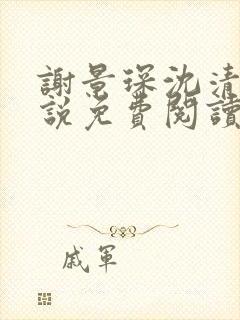 謝景琛沈清
說免費閱讀
戚軍